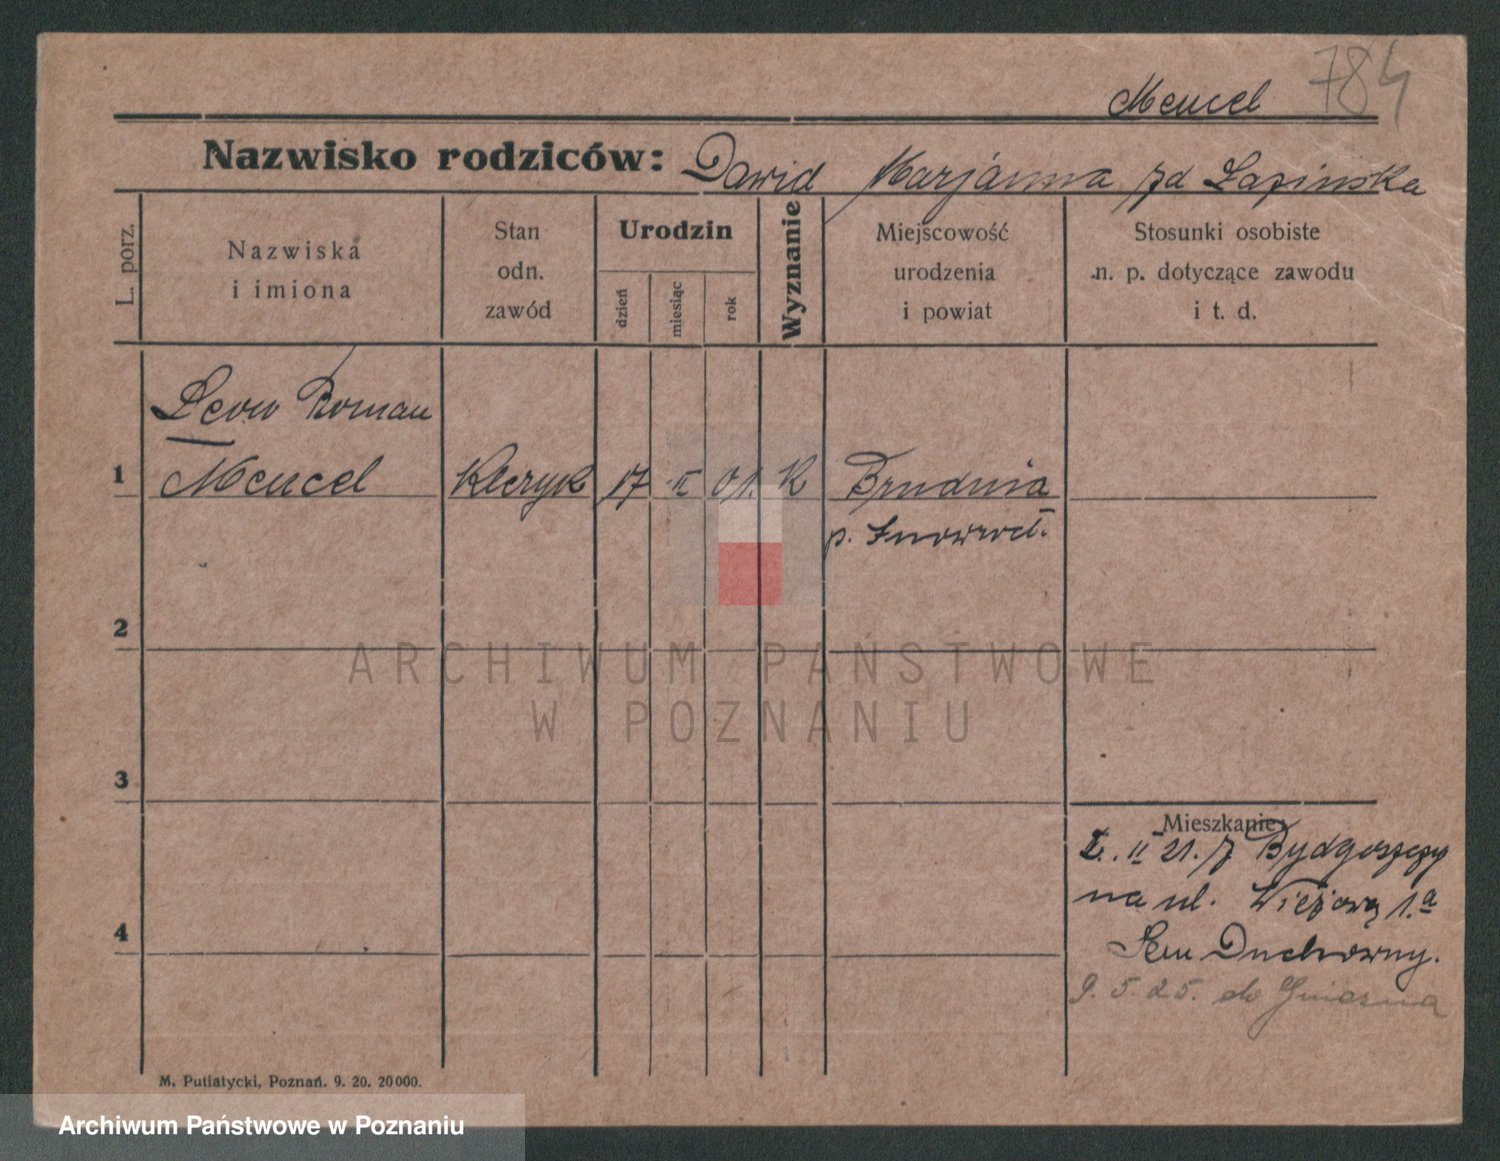 784
Mencel
Nazwisko rodziców: Dawid Marjanna zd Łapińska
L. porz.
Nazwiska
i imiona
Stan
odn.
zawód
Urodzin
dzień
miesiąc
rok
Wyznanie
Miejscowość
urodzenia
i powiat
Stosunki osobiste
n. p. dotyczące zawodu
i t. d.
Leon Roman
1 Mencel Kleryk 17 II 01. K Brudnia
p. Inowrocł.
2
ARCHIWUM PAŃSTWOWE
W POZNANIU
3
Mieszkanie:
II 21. z Bydgoszczy
na ul. Wieżową 1.a
Sem Duchowny.
9. 5. 25. do Gniezna
4
M. Putiatycki, Poznań. 9. 20. 20000.
Archiwum Państwowe w Poznaniu